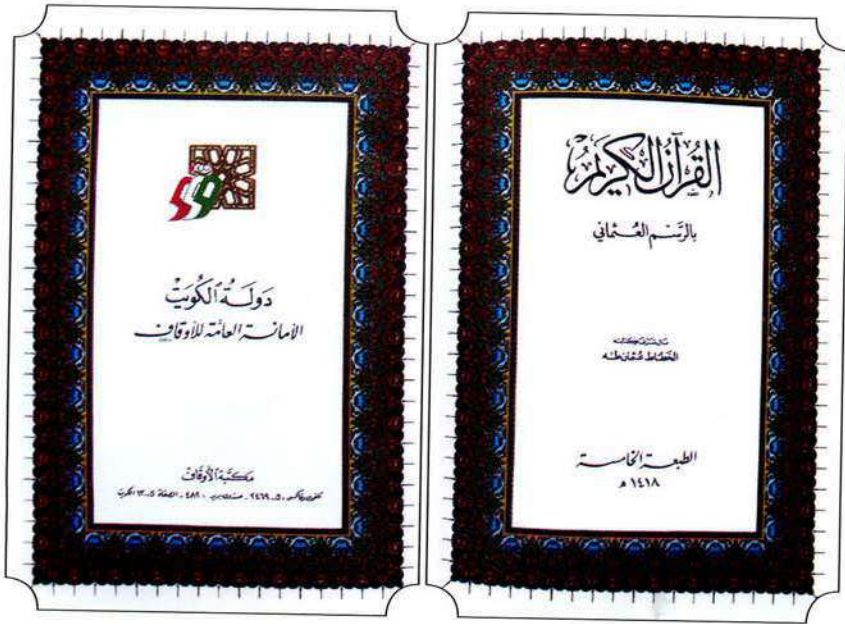 القُرآنُ الكَرِيمُ
بالرَّسْمِ العُثماني
الخطاط عثمان طه
الطبعة الخامسة
١٤١٨ هـ
دَولَةُ الكُوَيتْ
الأمانة العامة للأوقاف
مكتبة الأوقاف